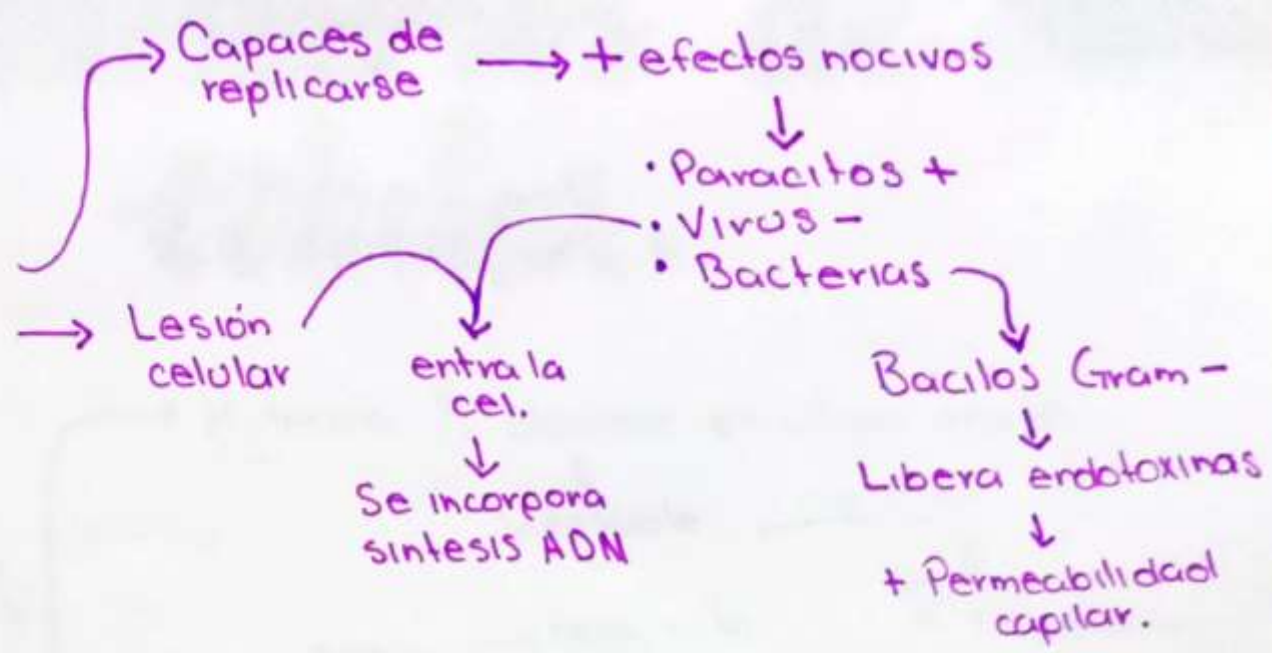 Capaces de
replicarse
+ efectos nocivos
• Paracitos +
• Virus -
• Bacterias
Lesión
celular
entra la
cel.
Se incorpora
sintesis ADN
Bacilos Gram -
Libera endotoxinas
+ Permeabilidad
capilar.